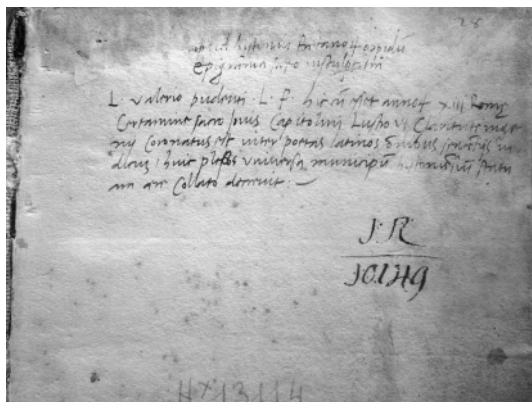 28
apud histonium frentanorum oppidū
Epigrāma saxo insculptum
L. valerio pudenti L. F. hic cū eset annor XIII Romę
Certamine sacro Iovis Capitolini Lustro VI Claritate inge
nij Coronatus est inter poetas latinos omnibus sententijs iu
dicus, huic plebs universa municipū histoniēsiū statu
am aere Collato decrevit.
J: R:
10.149
Hx13114